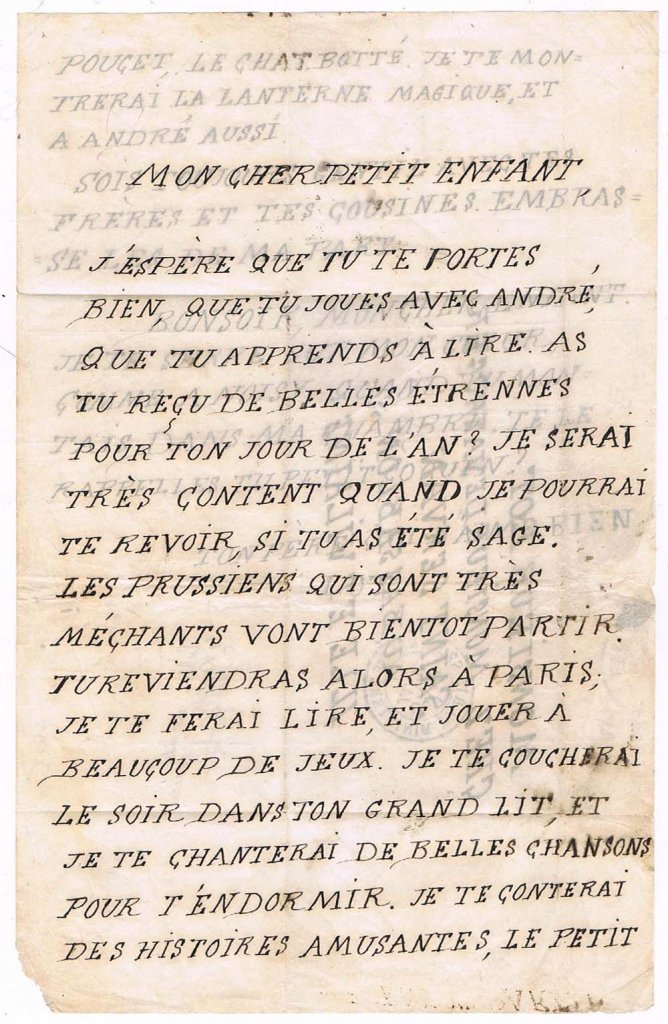 POUÇET, LE CHAT BOTTÉ. JE TE MON=
TRERAI LA LANTERNE MAGIQUE, ET
A ANDRÉ AUSSI
MON CHER PETIT ENFANT
SOIS
FRÈRES ET TES COUSINES. EMBRAS=
SE LES DE MA PART.
J'ESPÈRE QUE TU TE PORTES
BIEN, QUE TU JOUES AVEC ANDRÉ,
BONSOIR, MON CHER
QUE TU APPRENDS À LIRE. AS
TU REÇU DE BELLES ÉTRENNES
DANS MA CHAMBRE. TE LE
POUR TON JOUR DE L'AN? JE SERAI
RAPPELLES TU
TRÈS ÇONTENT QUAND JE POURRAI
TE REVOIR, SI TU AS ÉTÉ SAGE.
TON PÈRE BIEN
LES PRUSSIENS QUI SONT TRÈS
MÉÇHANTS VONT BIENTOT PARTIR.
TU REVIENDRAS ALORS À PARIS;
JE TE FERAI LIRE, ET JOUER À
BEAUÇOUP DE JEUX. JE TE ÇOUCHERAI
LE SOIR DANS TON GRAND LIT, ET
JE TE ÇHANTERAI DE BELLES ÇHANSONS
POUR T'ÉNDORMIR. JE TE ÇONTERAI
DES HISTOIRES AMUSANTES, LE PETIT